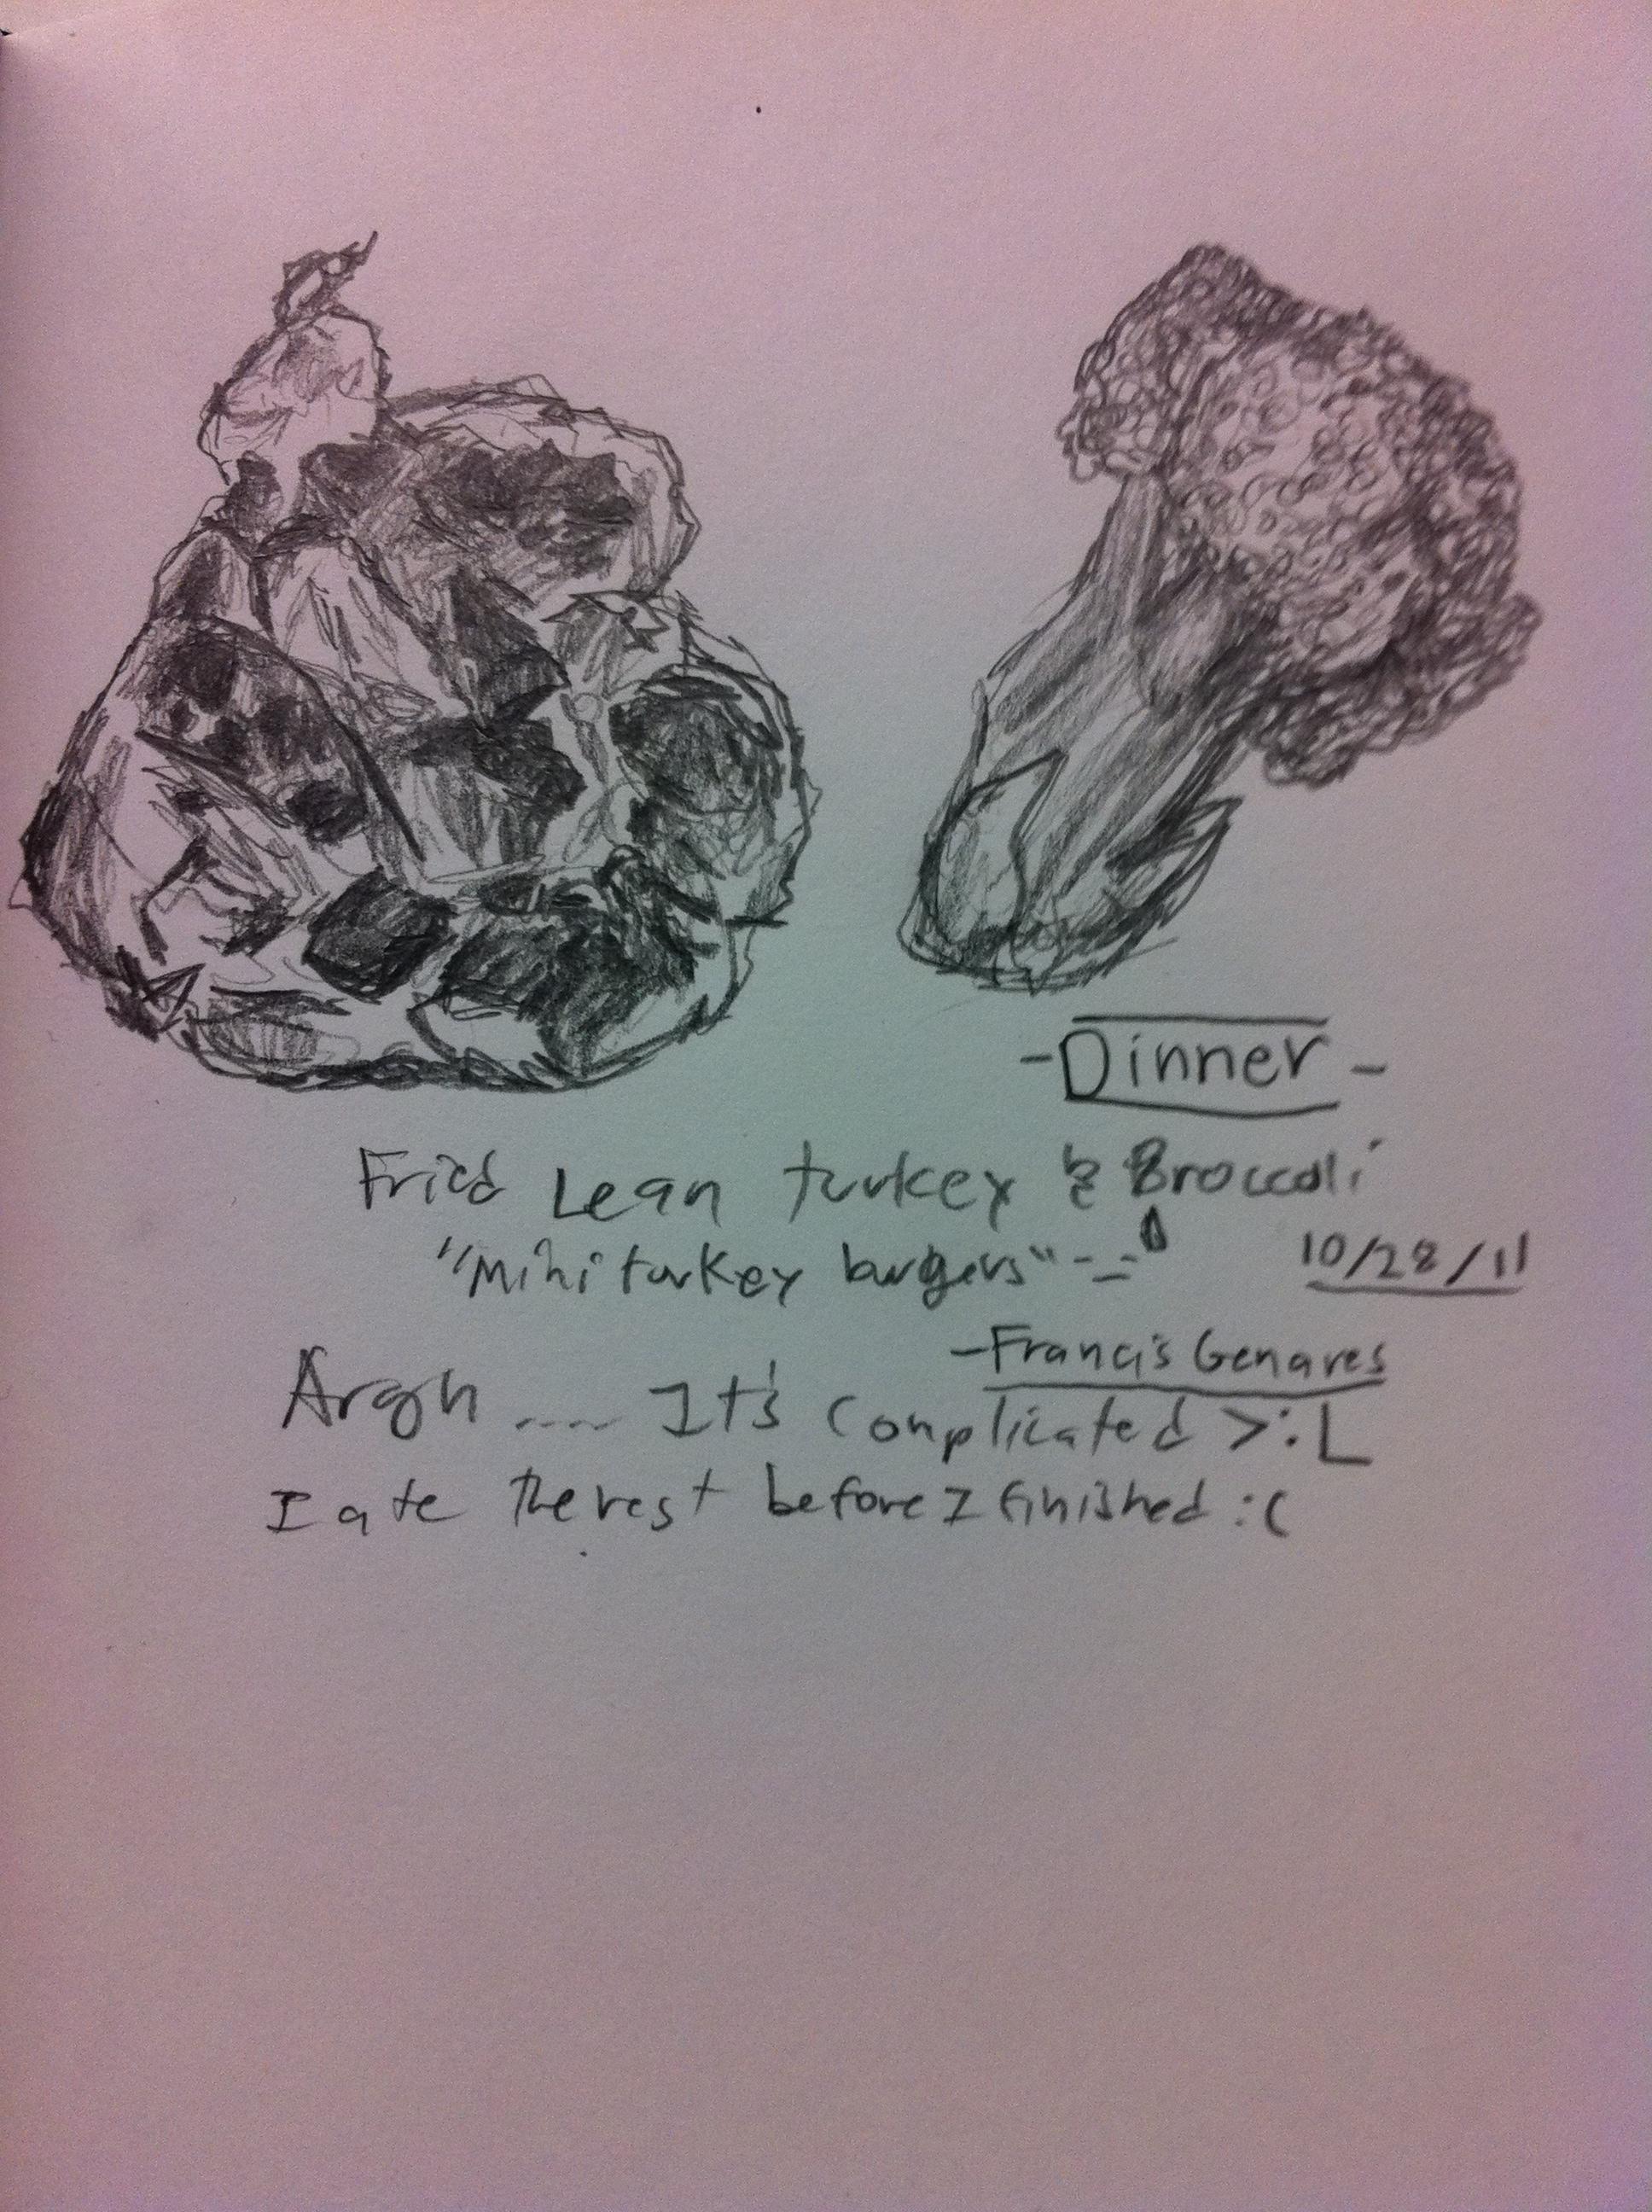 -Dinner-
Fried Lean turkey & Broccoli
"Mini turkey burgers" -_-
10/28/11
-Francis Genares
Argh .... It's complicated >:L
I ate the rest before I finished :(